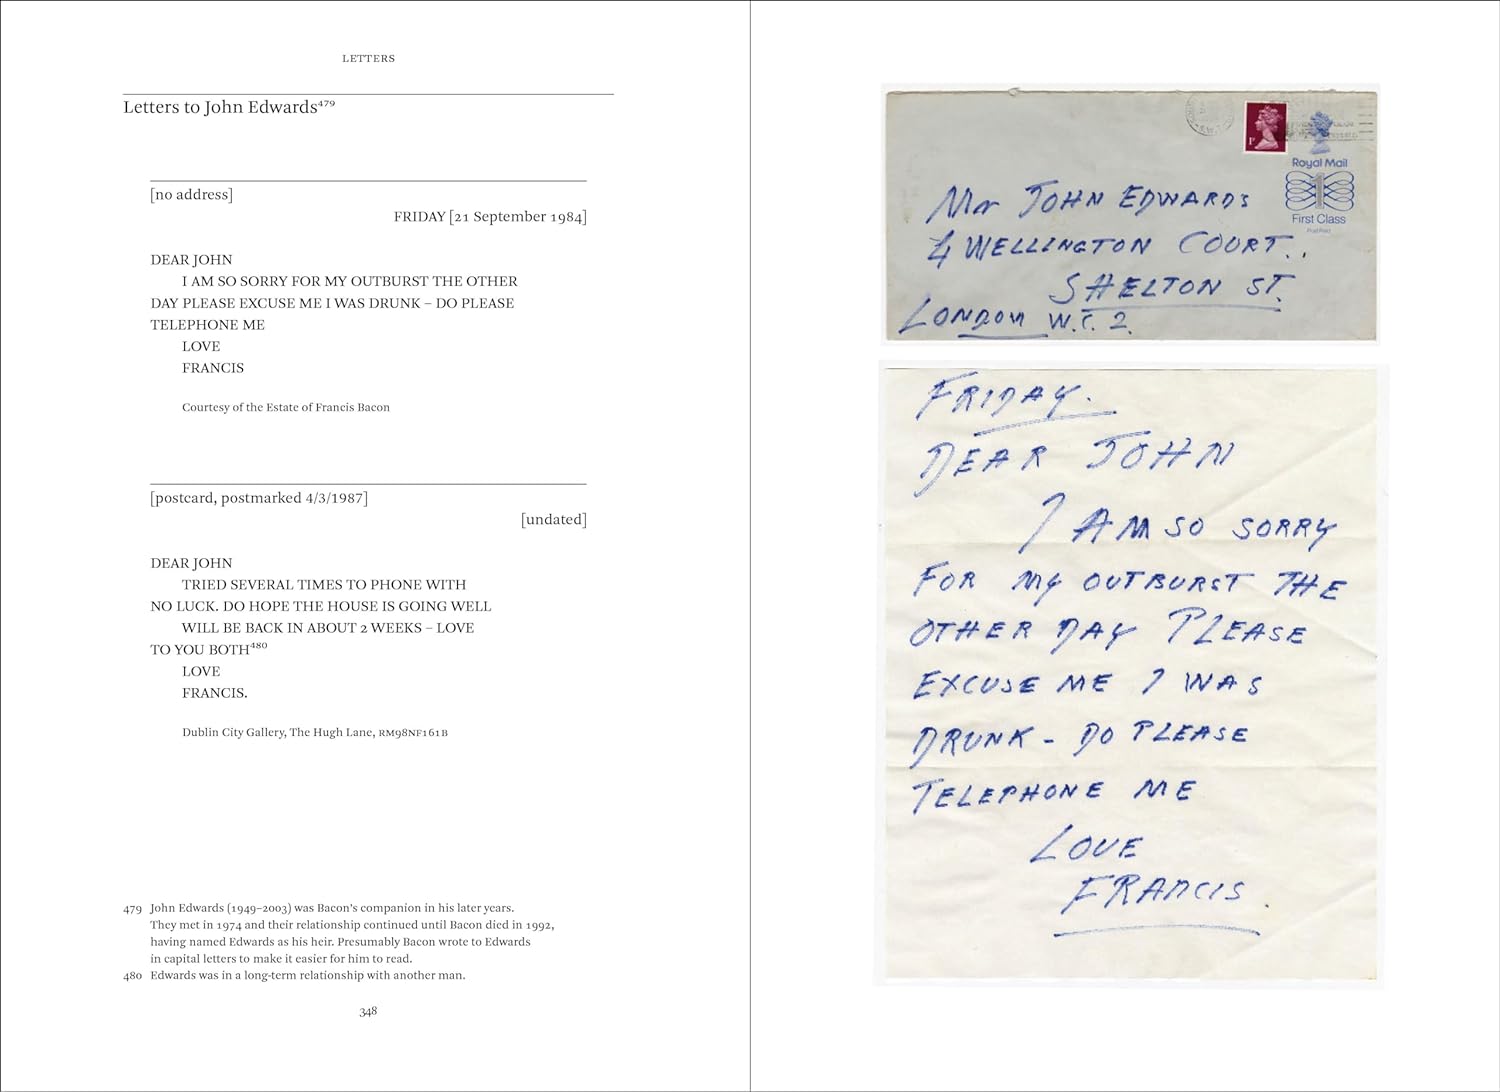 LETTERS
Letters to John Edwards⁴⁷⁹
[no address]
FRIDAY [21 September 1984]
DEAR JOHN
I AM SO SORRY FOR MY OUTBURST THE OTHER
DAY PLEASE EXCUSE ME I WAS DRUNK – DO PLEASE
TELEPHONE ME
LOVE
FRANCIS
Courtesy of the Estate of Francis Bacon
[postcard, postmarked 4/3/1987]
[undated]
DEAR JOHN
TRIED SEVERAL TIMES TO PHONE WITH
NO LUCK. DO HOPE THE HOUSE IS GOING WELL
WILL BE BACK IN ABOUT 2 WEEKS – LOVE
TO YOU BOTH⁴⁸⁰
LOVE
FRANCIS.
Dublin City Gallery, The Hugh Lane, RM98NF161B
479 John Edwards (1949–2003) was Bacon's companion in his later years.
They met in 1974 and their relationship continued until Bacon died in 1992,
having named Edwards as his heir. Presumably Bacon wrote to Edwards
in capital letters to make it easier for him to read.
480 Edwards was in a long-term relationship with another man.
348
1P
Royal Mail
1
First Class
Post Paid
Mr JOHN EDWARDS
4 WELLINGTON COURT..
SHELTON ST.
LONDON W.C. 2.
FRIDAY.
DEAR JOHN
I AM SO SORRY
FOR MY OUTBURST THE
OTHER DAY PLEASE
EXCUSE ME I WAS
DRUNK - DO PLEASE
TELEPHONE ME
LOVE
FRANCIS.